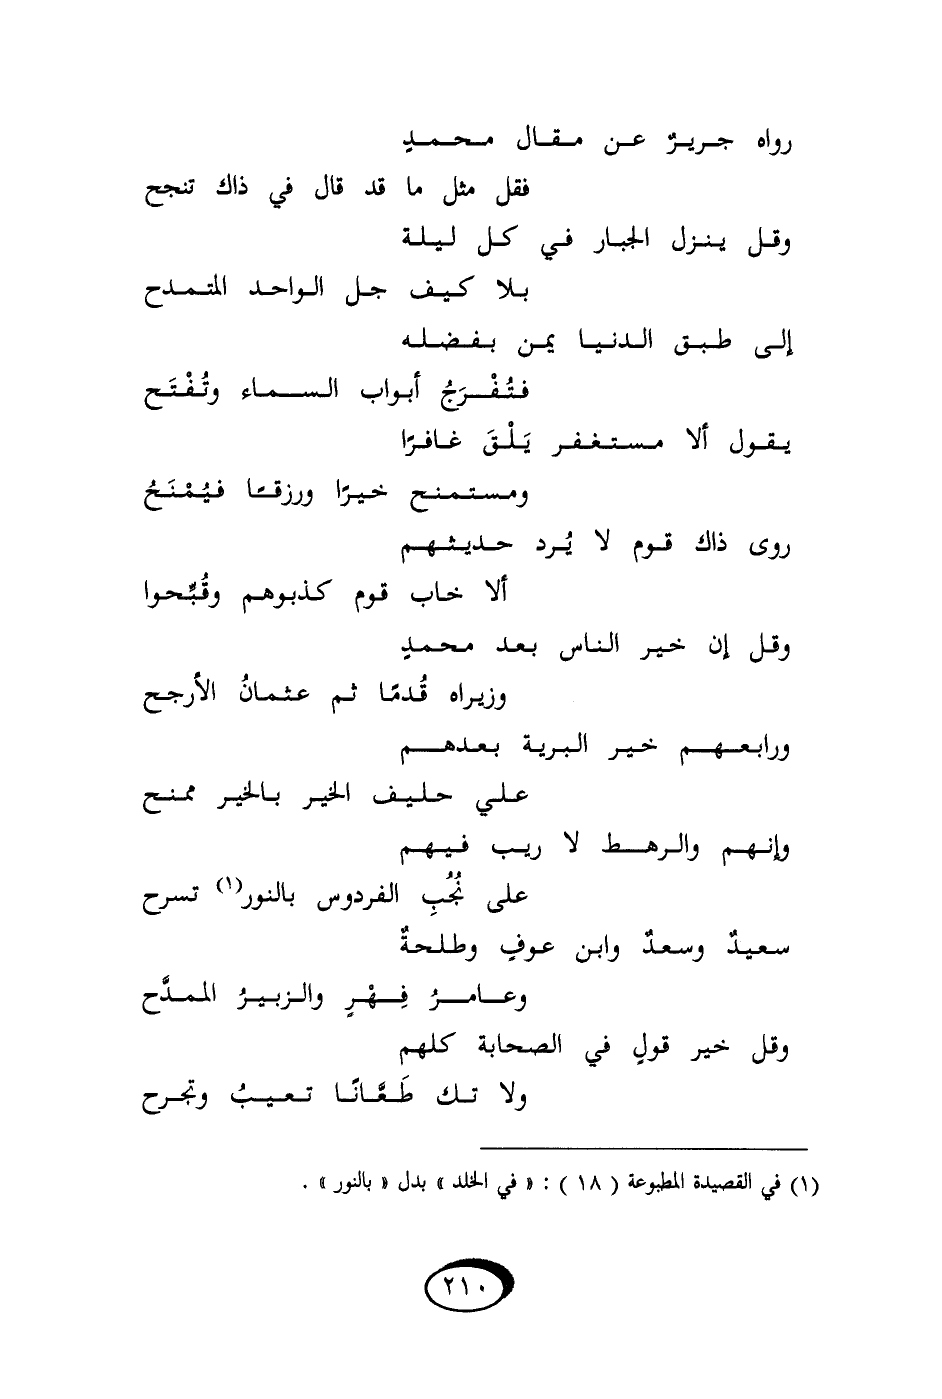 رواه جريرٌ عن مقال محمدٍ
فقل مثل ما قد قال في ذاك تنجح
وقل ينزل الجبار في كل ليلة
بلا كيف جل الواحد المتمدح
إلى طبق الدنيا يمن بفضله
فتُفْرَجُ أبواب السماء وتُفْتَح
يقول ألا مستغفر يَلْقَ غافرًا
ومستمنح خيرًا ورزقًا فيُمْنَحُ
روى ذاك قوم لا يُرد حديثهم
ألا خاب قوم كذبوهم وقُبِّحوا
وقل إن خير الناس بعد محمدٍ
وزيراه قُدمًا ثم عثمانُ الأرجح
ورابعهم خير البرية بعدهم
علي حليف الخير بالخير ممنح
وإنهم والرهط لا ريب فيهم
على نُجُبِ الفردوس بالنور(١) تسرح
سعيدٌ وسعدٌ وابن عوفٍ وطلحةٌ
وعامرُ فِهْرٍ والزبيرُ الممدَّح
وقل خير قولٍ في الصحابة كلهم
ولا تك طَعَّانًا تعيبُ وتجرح
(١) في القصيدة المطبوعة ( ١٨ ) : « في الخلد » بدل « بالنور » .
٢١٠